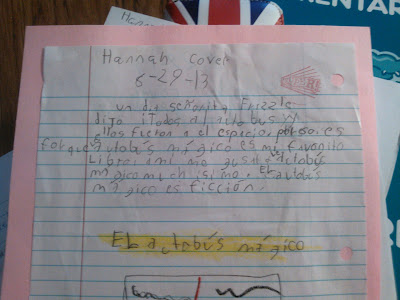 Hannah Cover
6-29-13
un dia señorita Frizzle
dijo ¡Todos al autobus y
ellos fueron a el espacio. por eso es
porque autobús mágico es mi favorito
Libro. ami me gusta autobús
magico muchisimo. El autobús
mágico es ficción.
EL autobús mágico